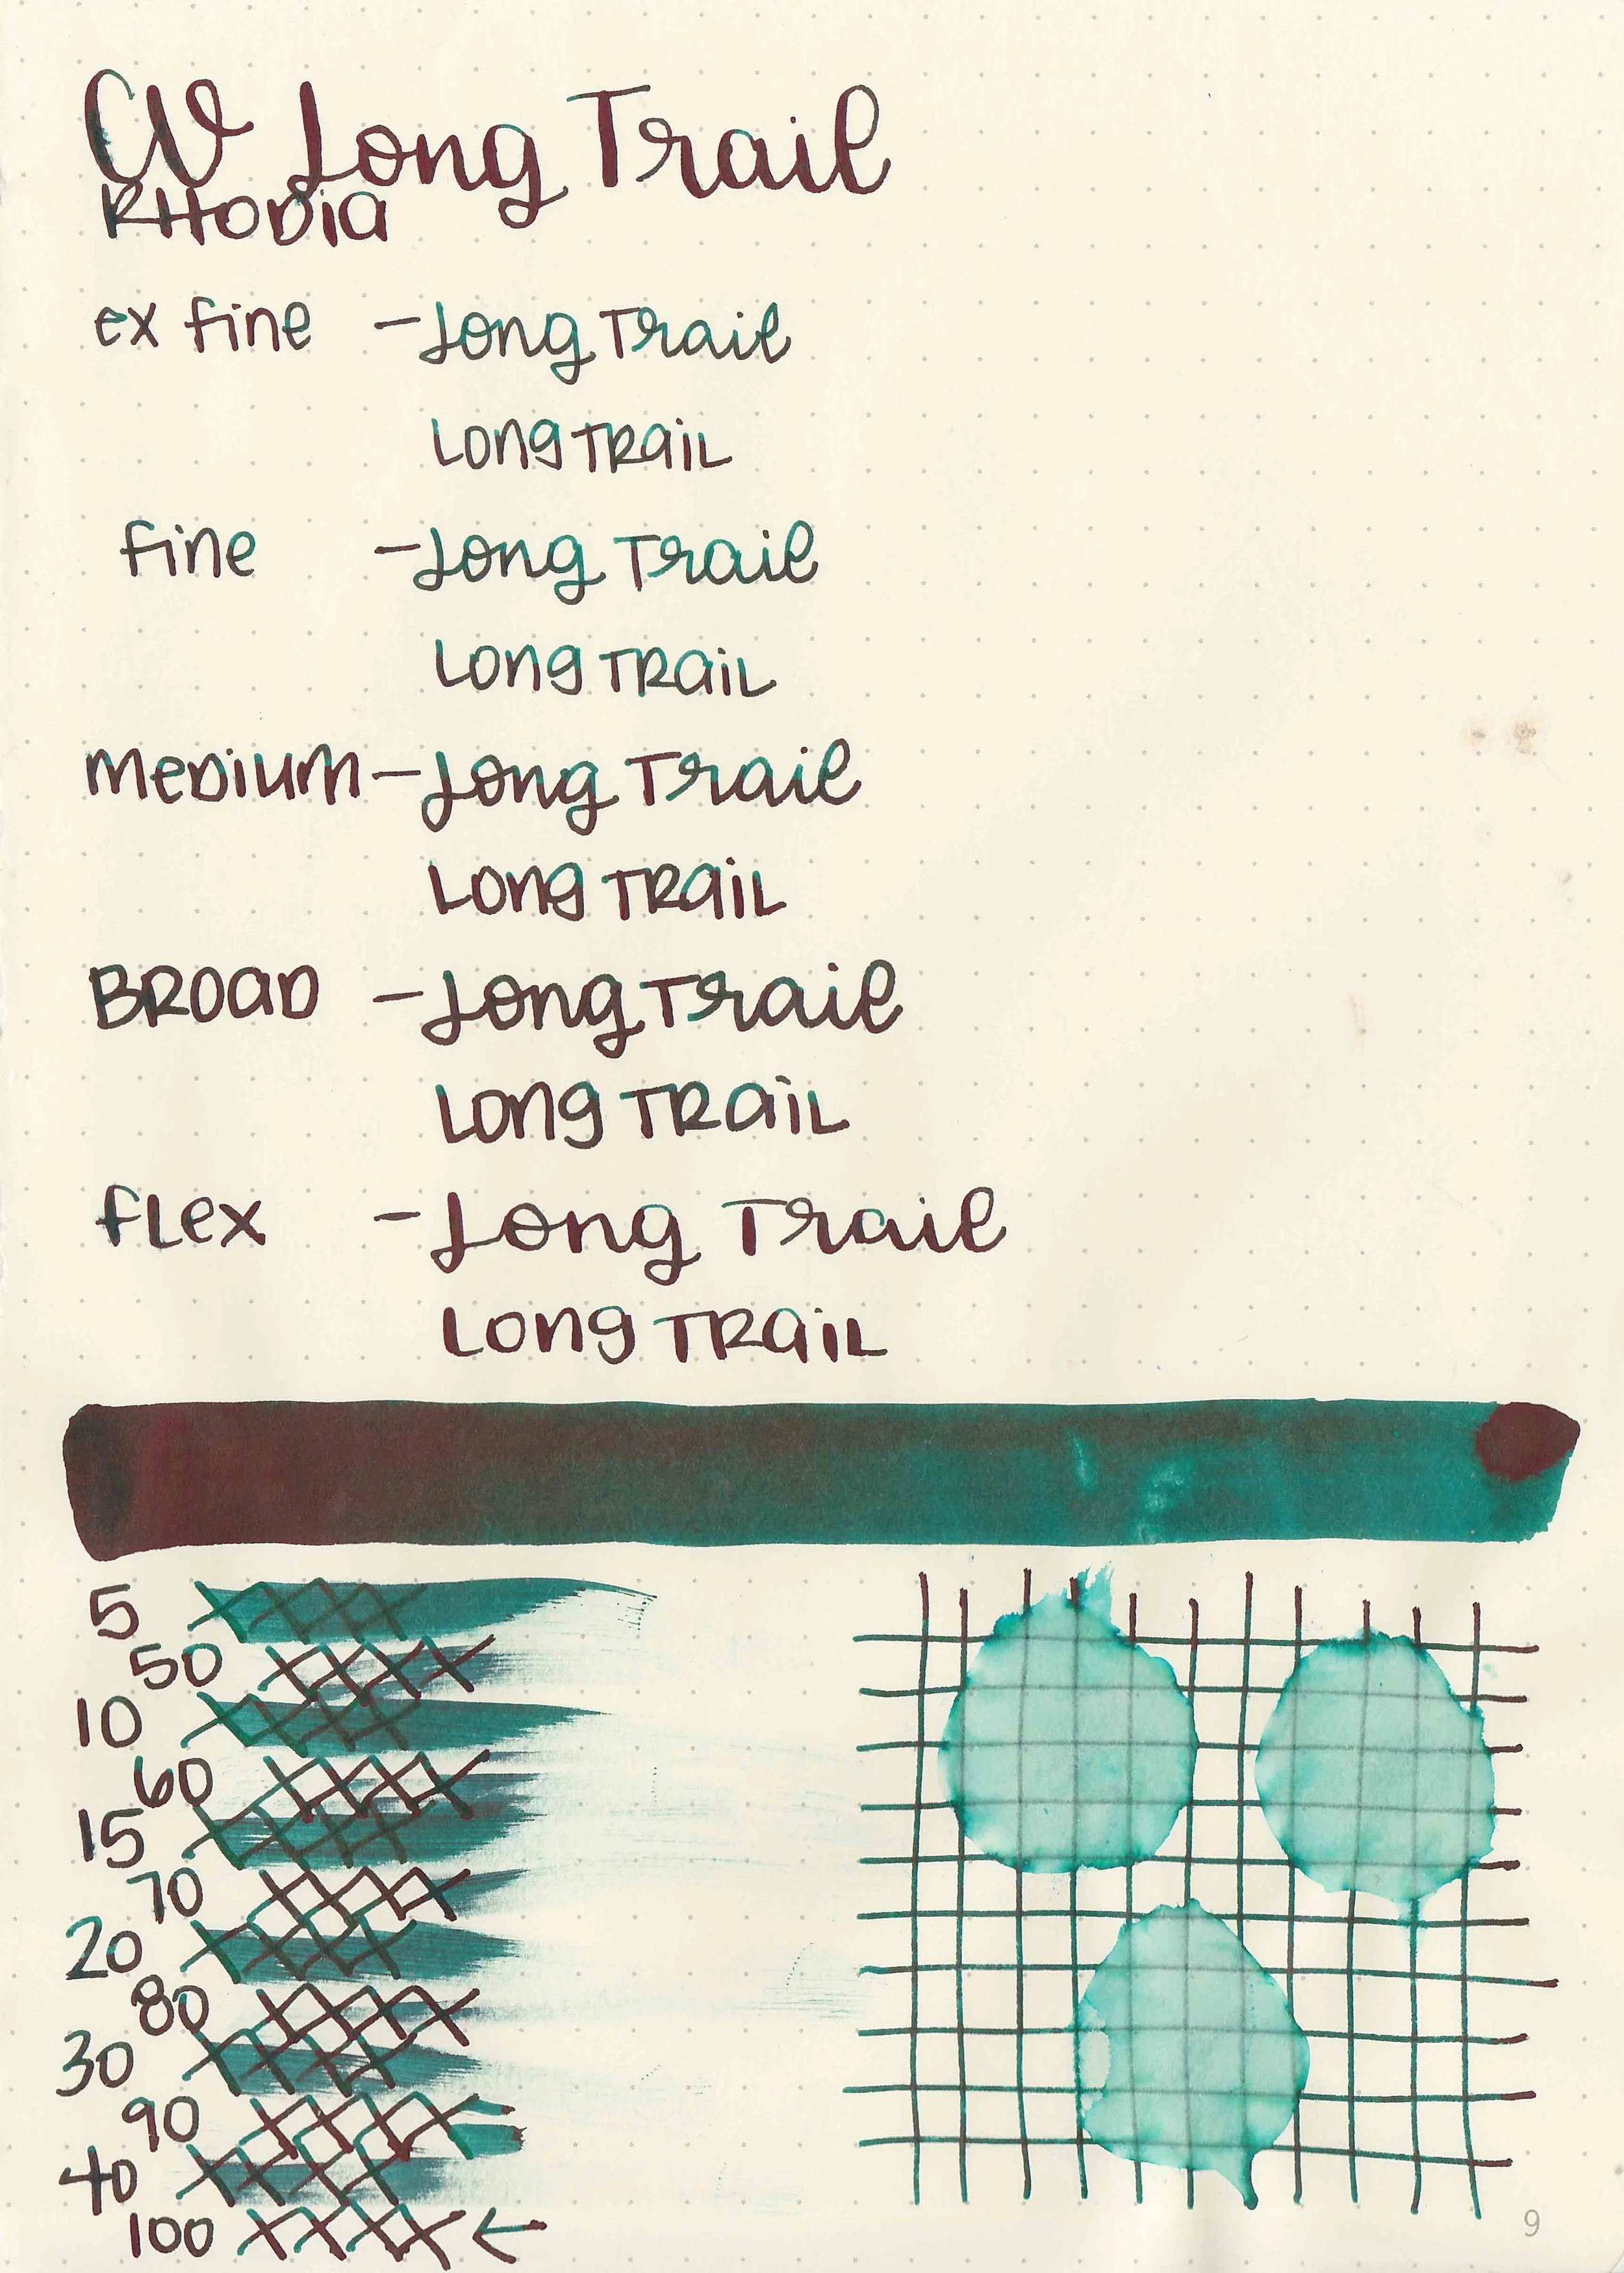 CV Long Trail
RHODIA
ex fine - Long Trail
Long TRaiL
fine - Long Trail
Long TRaiL
MeDium - Long Trail
Long TRaiL
BROaD - Long Trail
Long TRaiL
fLex - Long Trail
Long TRaiL
5
50
10
60
15
70
20
80
30
90
40
100 ←
9